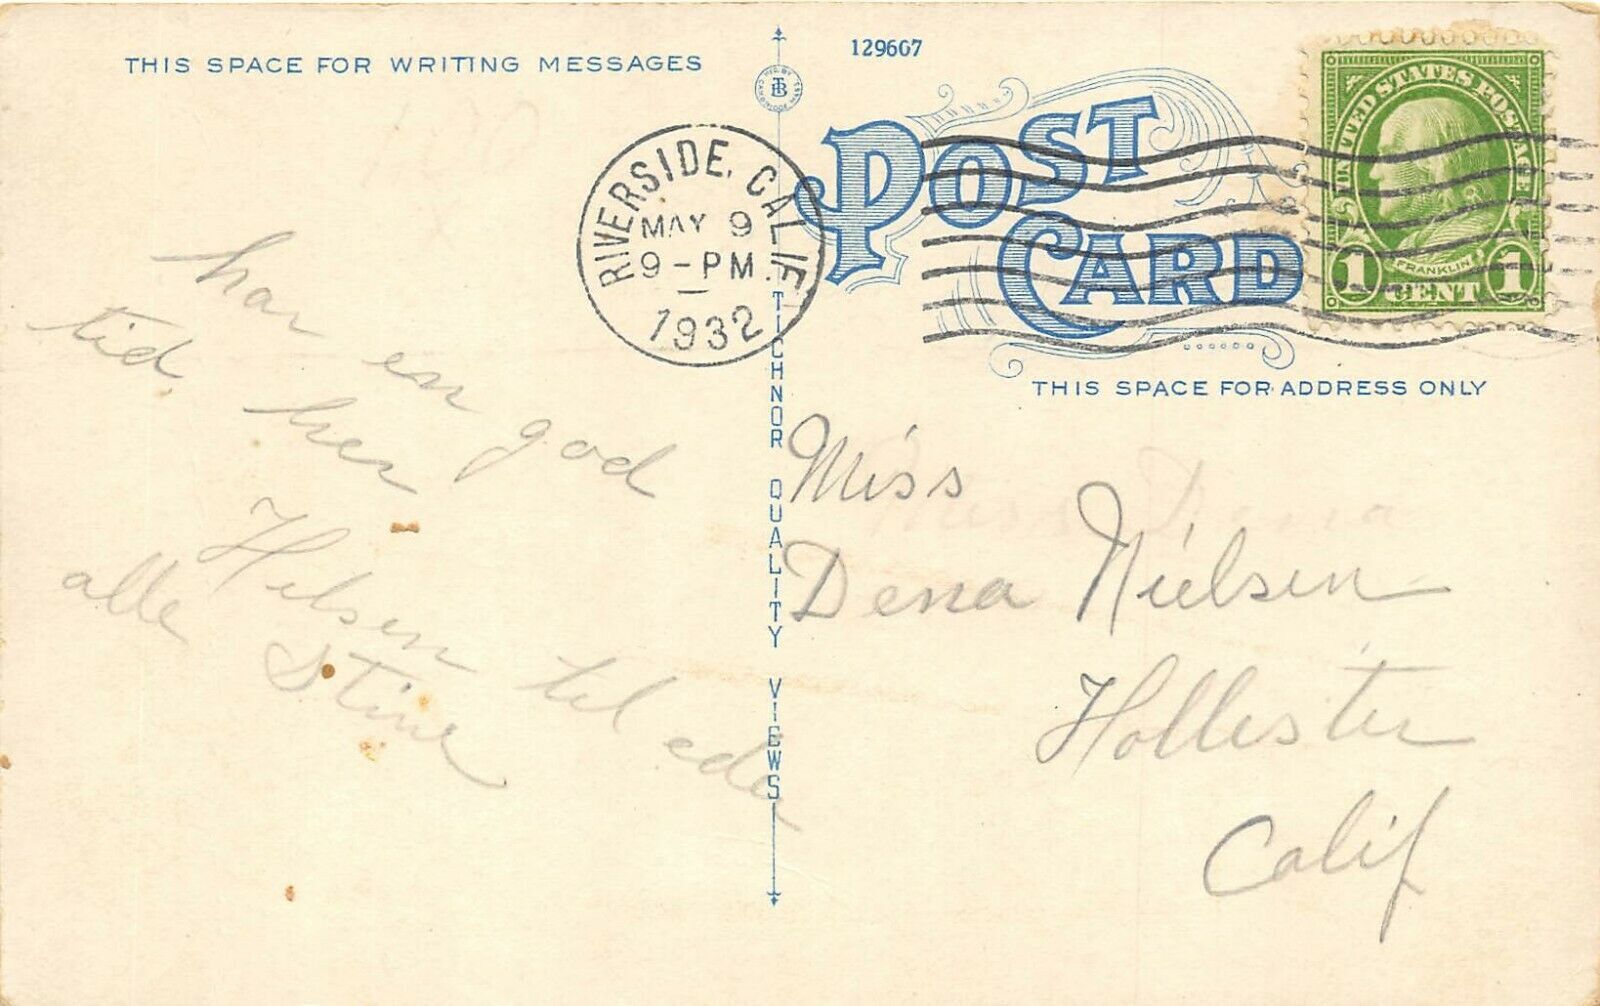 THIS SPACE FOR WRITING MESSAGES
har en god
tid her
Hilsen til eder
alle Stine
MFG BY TB CAMBRIDGE MASS
TICHNOR QUALITY VIEWS
RIVERSIDE, CALIF.
MAY 9
9-PM
1932
129607
POST CARD
UNITED STATES POSTAGE
FRANKLIN
1 CENT 1
THIS SPACE FOR ADDRESS ONLY
Miss
Dena Nielsen
Hollister
Calif